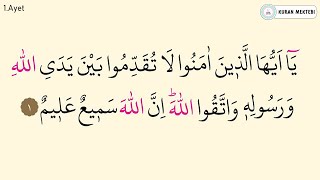 1.Ayet
KURAN MEKTEBİ
يَٓا اَيُّهَا الَّذ۪ينَ اٰمَنُوا لَا تُقَدِّمُوا بَيْنَ يَدَيِ اللّٰهِ
وَرَسُولِه۪ وَاتَّقُوا اللّٰهَۜ اِنَّ اللّٰهَ سَم۪يعٌ عَل۪يمٌ ١